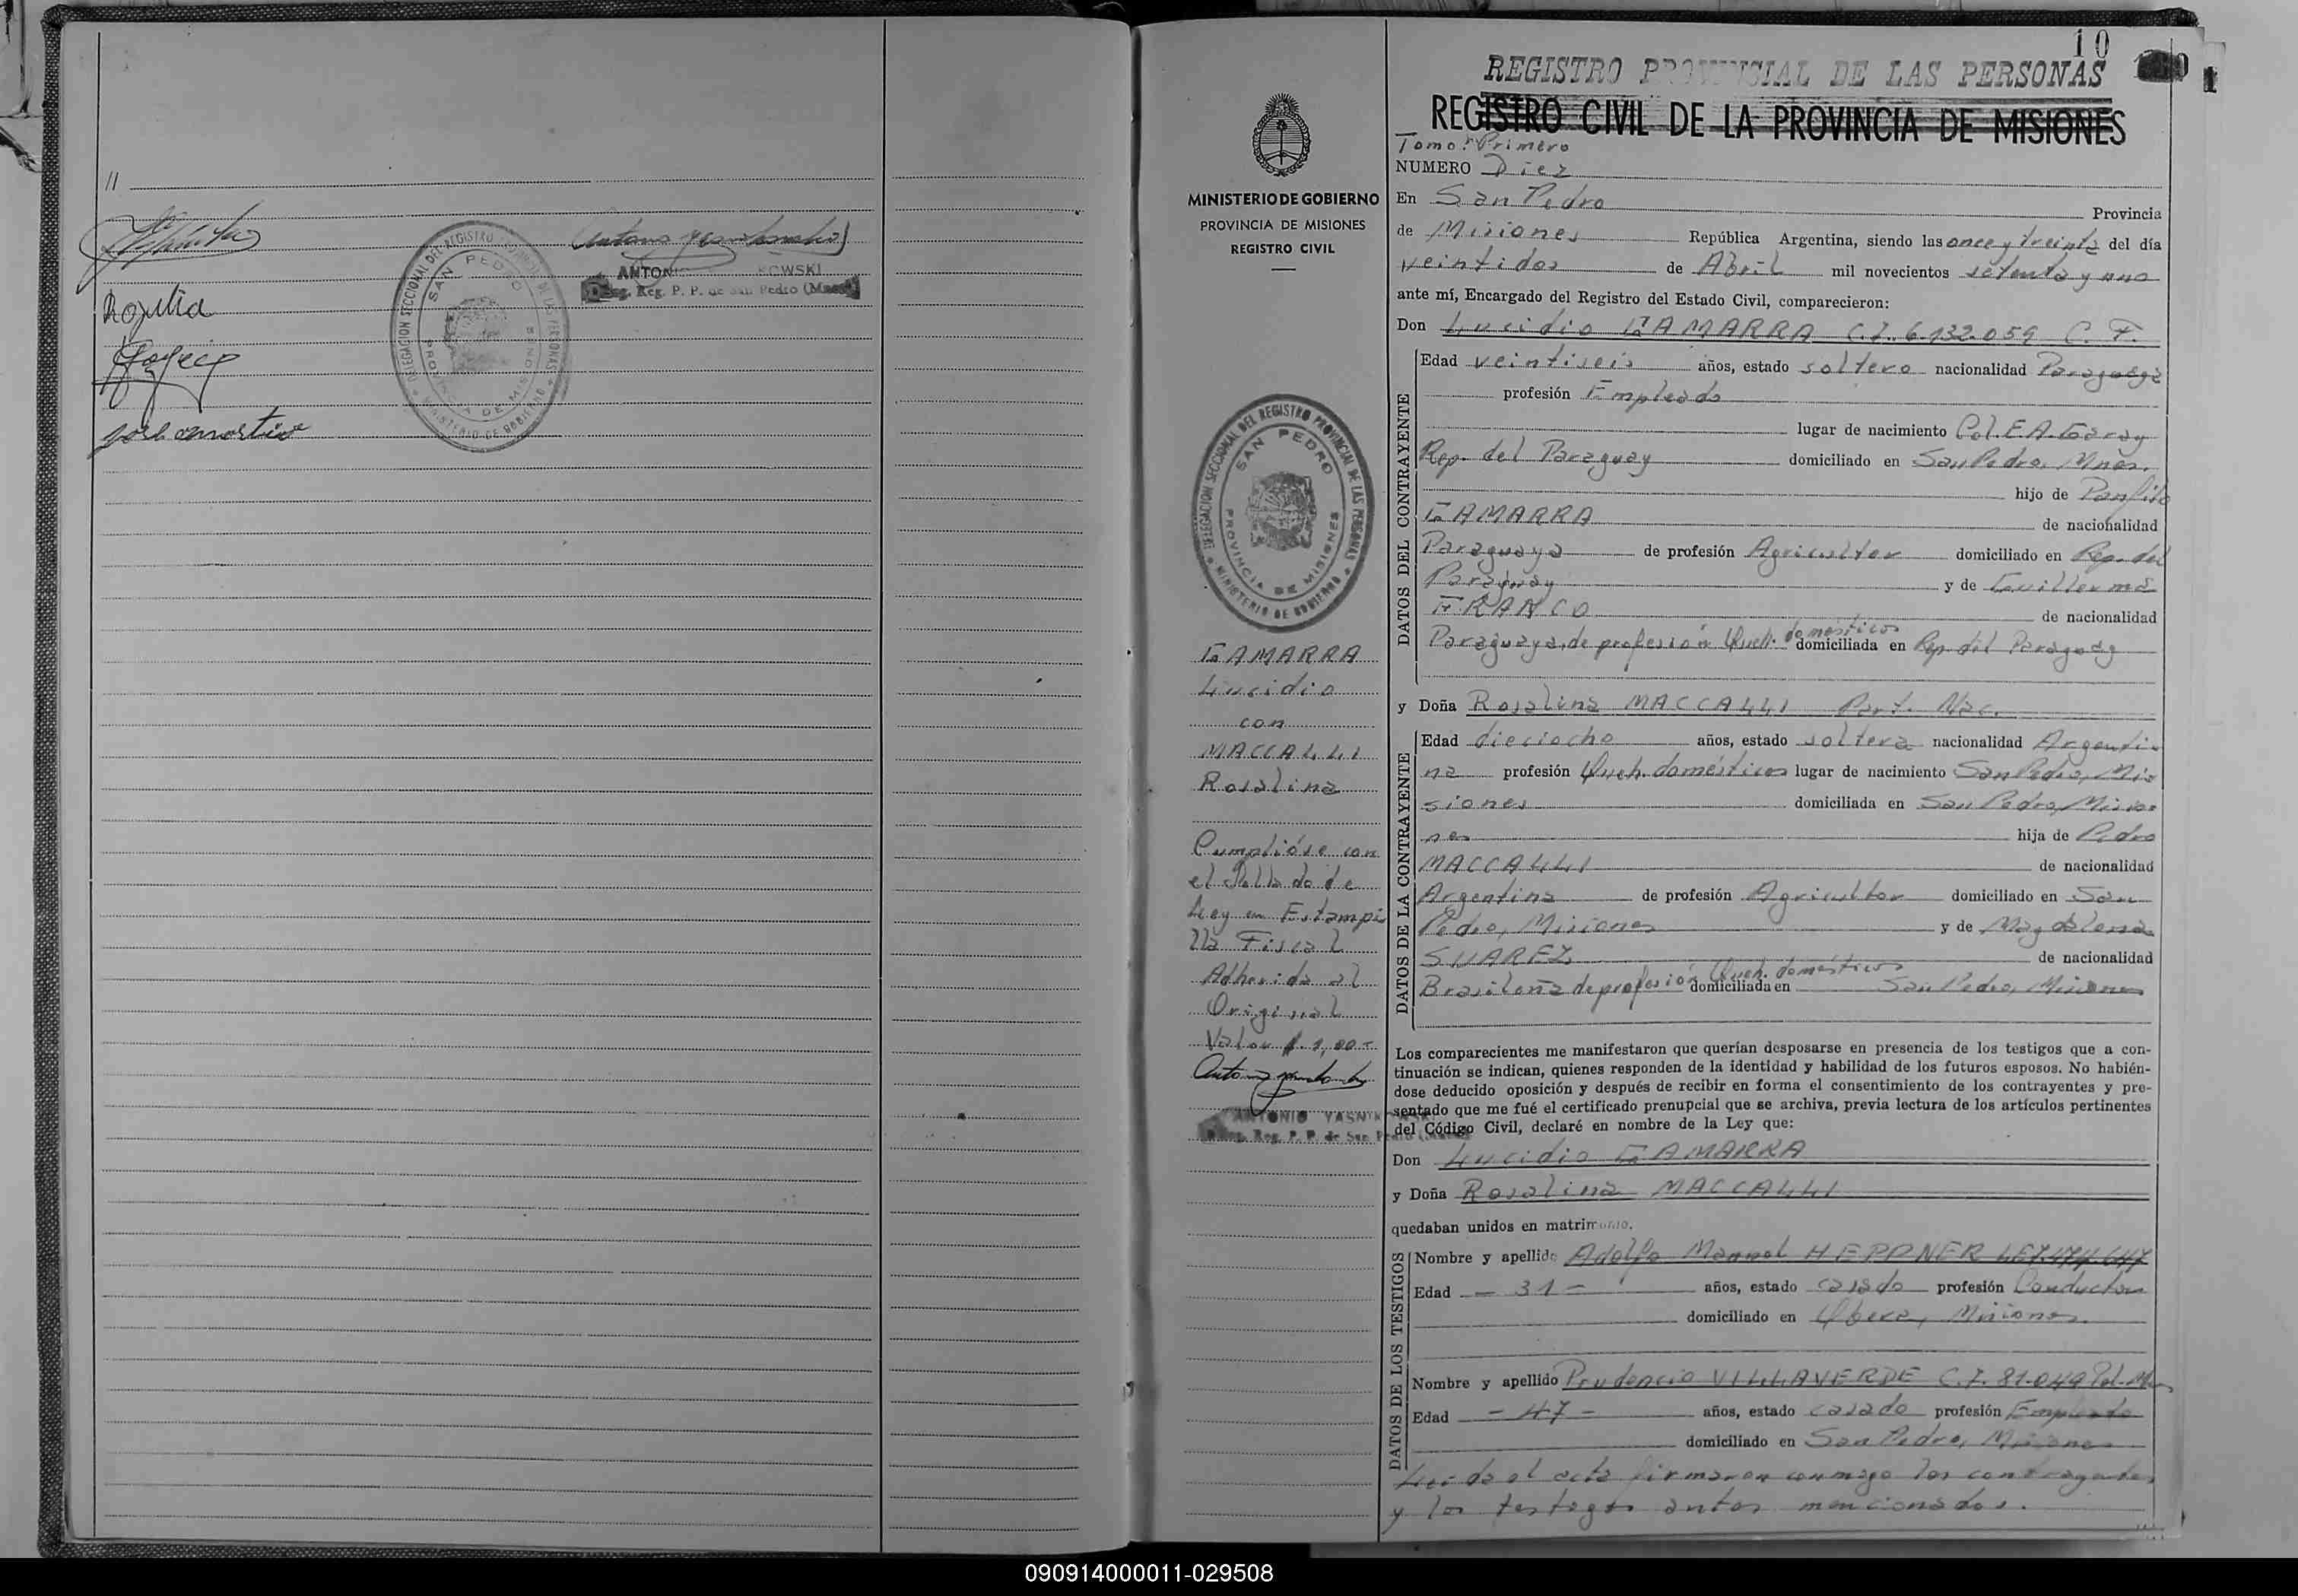 //
Rosalina
ANTONIO
KOWSKI
Enc. Reg. P. P. de San Pedro (Mnes)
DELEGACION SECCIONAL DEL REGISTRO PROVINCIAL DE LAS PERSONAS
SAN PEDRO
PROVINCIA DE MISIONES
MINISTERIO DE GOBIERNO
MINISTERIO DE GOBIERNO
PROVINCIA DE MISIONES
REGISTRO CIVIL
DELEGACION SECCIONAL DEL REGISTRO PROVINCIAL DE LAS PERSONAS
SAN PEDRO
PROVINCIA DE MISIONES
MINISTERIO DE GOBIERNO
GAMARRA
Lucidio
con
MACCALLI
Rosalina
Cumplióse con
el Sellado de
Ley en Estampi
lla Fiscal
Adherida al
Original
Valor $ 1,00-
ANTONIO YASNIKOWSKI
Enc. Reg. P. P. de San Pedro (Mnes)
10
REGISTRO PROVINCIAL DE LAS PERSONAS
REGISTRO CIVIL DE LA PROVINCIA DE MISIONES
Tomo: Primero
NUMERO Diez
En San Pedro Provincia
de Misiones República Argentina, siendo las once y treinta del día
veintidos de Abril mil novecientos setenta y uno
ante mí, Encargado del Registro del Estado Civil, comparecieron:
Don Lucidio GAMARRA C.I. 6.132.059 C. F.
DATOS DEL CONTRAYENTE
Edad veintiseis años, estado soltero nacionalidad Paraguaya
profesión Empleado
lugar de nacimiento Col. E.A. Garay
Rep. del Paraguay domiciliado en San Pedro, Mnes.
hijo de Panfilo
GAMARRA de nacionalidad
Paraguaya de profesión Agricultor domiciliado en Rep. del
Paraguay y de Guillerma
FRANCO de nacionalidad
Paraguaya, de profesión Queh. domésticos domiciliada en Rep. del Paraguay
y Doña Rosalina MACCALLI Part. Nac.
DATOS DE LA CONTRAYENTE
Edad dieciocho años, estado soltera nacionalidad Argenti-
na profesión Queh. domésticos lugar de nacimiento San Pedro, Mi-
siones domiciliada en San Pedro, Misio-
nes hija de Pedro
MACCALLI de nacionalidad
Argentina de profesión Agricultor domiciliado en San
Pedro, Misiones y de Magdalena
SUAREZ de nacionalidad
Brasileña de profesión Queh. domésticos domiciliada en San Pedro, Misiones
Los comparecientes me manifestaron que querían desposarse en presencia de los testigos que a con-
tinuación se indican, quienes responden de la identidad y habilidad de los futuros esposos. No habién-
dose deducido oposición y después de recibir en forma el consentimiento de los contrayentes y pre-
sentado que me fué el certificado prenupcial que se archiva, previa lectura de los artículos pertinentes
del Código Civil, declaré en nombre de la Ley que:
Don Lucidio GAMARRA
y Doña Rosalina MACCALLI
quedaban unidos en matrimonio.
DATOS DE LOS TESTIGOS
Nombre y apellido Adolfo Manuel HEPPNER L.E. 7.474.647
Edad - 31 - años, estado casado profesión Conductor
domiciliado en Obera, Misiones.
Nombre y apellido Prudencio VILLAVERDE C.I. 81.049 Pol. Mnes
Edad - 47 - años, estado casado profesión Empleado
domiciliado en San Pedro, Misiones
Leída el acta firmaron conmigo los contrayentes
y los testigos antes mencionados.
090914000011-029508